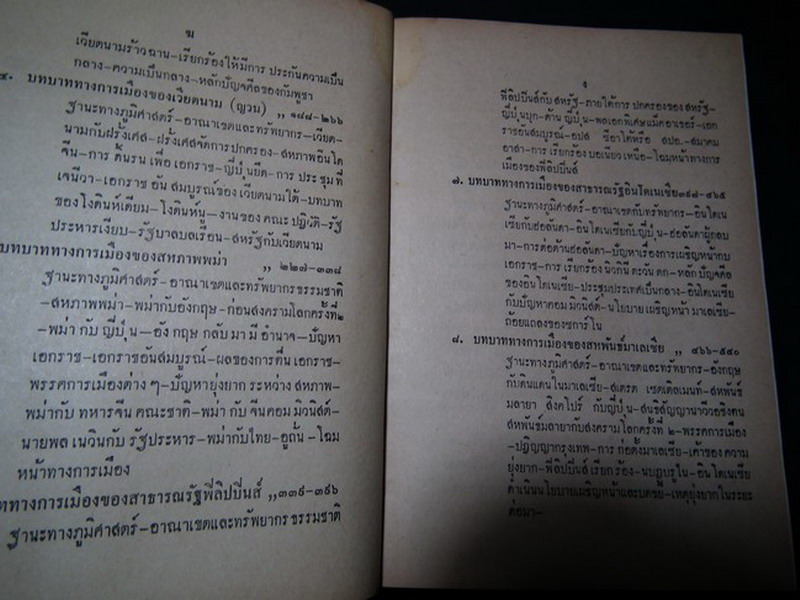 ฆ
เวียดนามร้าวฉาน–เรียกร้องให้มีการ ประกันความเป็น
กลาง–ความเป็นกลาง–หลักปัญจศีลของกัมพูชา
๔. บทบาททางการเมืองของเวียดนาม (ญวน) „ ๑๘๘–๒๖๖
ฐานะทางภูมิศาสตร์–อาณาเขตและทรัพยากร–เวียด-
นามกับฝรั่งเศส–ฝรั่งเศสจัดการปกครอง–สหภาพอินโด
จีน–การ ดิ้นรน เพื่อ เอกราช–ญี่ปุ่นยึด–การ ประ ชุม ที่
เจนีวา–เอกราช อัน สมบูรณ์ของ เวียดนามใต้–บทบาท
ของโงดินห์เดียม–โงดินห์นู–งานของ คณะ ปฏิวัติ–รัฐ
ประหารเงียบ–รัฐบาลพลเรือน–สหรัฐกับเวียดนาม
บทบาททางการเมืองของสหภาพพม่า „ ๒๒๗–๓๓๘
ฐานะทางภูมิศาสตร์–อาณาเขตและทรัพยากรธรรมชาติ
–สหภาพพม่า–พม่ากับอังกฤษ–ก่อนสงครามโลกครั้งที่๒
–พม่า กับ ญี่ปุ่น–อัง กฤษ กลับ มา มี อำนาจ–ปัญหา
เอกราช–เอกราชอันสมบูรณ์–ผลของการคืน เอกราช–
พรรคการเมืองต่าง ๆ–ปัญหายุ่งยาก ระหว่าง สหภาพ-
พม่ากับ ทหารจีน คณะชาติ–พม่า กับ จีนคอม มิวนิสต์–
นายพล เนวินกับ รัฐประหาร–พม่ากับไทย–อูถั่น–โฉม
หน้าทางการเมือง
ททางการเมืองของสาธารณรัฐฟิลิปปินส์ „๓๓๙–๓๙๖
ฐานะทางภูมิศาสตร์–อาณาเขตและทรัพยากร ธรรมชาติ
ง
ฟิลิปปินส์กับ สหรัฐ–ภายใต้การ ปกครองของ สหรัฐ–
ญี่ปุ่นบุก–ต้าน ญี่ปุ่น–พลเอกพิเศษแม็คอาเธอร์–เอก
ราชอันสมบูรณ์–อปส ซีอาโต้หรือ สปอ.–สมาคม
อาสา–การ เรียกร้อง บอเนียว เหนือ–โฉมหน้าทางการ
เมืองของฟิลิปปินส์
๗. บทบาททางการเมืองของสาธารณรัฐอินโดเนเซีย๓๙๗–๔๖๕
ฐานะทางภูมิศาสตร์–อาณาเขตกับทรัพยากร–อินโดเน
เซียกับฮอลันดา–อินโดเนเซียกับญี่ปุ่น–ฮอลันดาผู้กลับ
มา–การต่อต้านฮอลันดา–ปัญหาเรื่องการเผชิญหน้ากับ
เอกราช–การ เรียกร้อง นิวกินี ตะวัน ตก–หลัก ปัญจศีล
ของอินโดเนเซีย–ประชุมประเทศเป็นกลาง–อินโดเนเซีย
กับปัญหาคอม มิวนิสต์–นโยบาย เผชิญหน้า มาเลเซีย–
ถ้อยแถลงของซูการ์โน
๘. บทบาททางการเมืองของสหพันธ์มาเลเซีย „ ๔๖๖–๕๔๐
ฐานะทางภูมิศาสตร์–อาณาเขตและทรัพยากร–อังกฤษ
กับดินแดนในมาเลเซีย–สเตรต เซตเติลเมนท์–สหพันธ์
มลายา สิงคโปร์ กับญี่ปุ่น–สนธิสัญญานาวีวอชิงตัน
สหพันธ์มลายากับสงครามโลกครั้งที่ ๒–พรรคการเมือง
–ปฏิญญากรุงเทพ–การ ก่อตั้งมาเลเซีย–เค้าของ ความ
ยุ่งยาก–ฟิลิปปินส์ เรียกร้อง–กบฏบรูไน–อินโดเนเซีย
ดำเนินนโยบายเผชิญหน้าและบดขยี้–เหตุยุ่งยากในระยะ
ต่อมา–